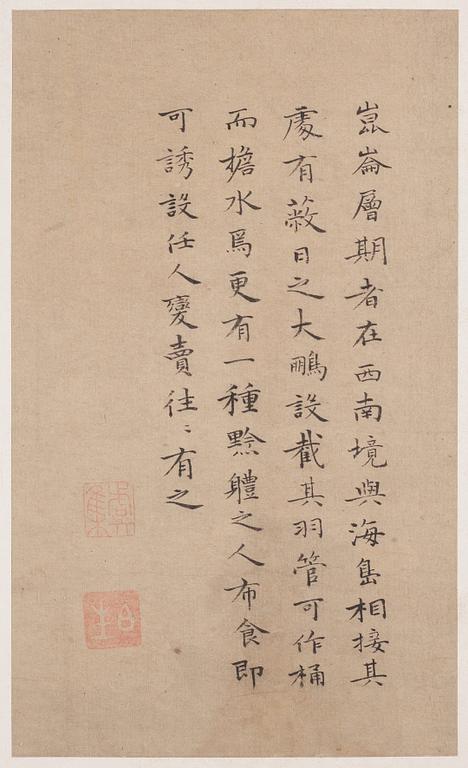 崑崙層期者在西南境與海島相接其
處有蔽日之大鵬設截其羽管可作桶
而擔水焉更有一種黥軆之人布食即
可誘設任人變賣往〻有之
虞集